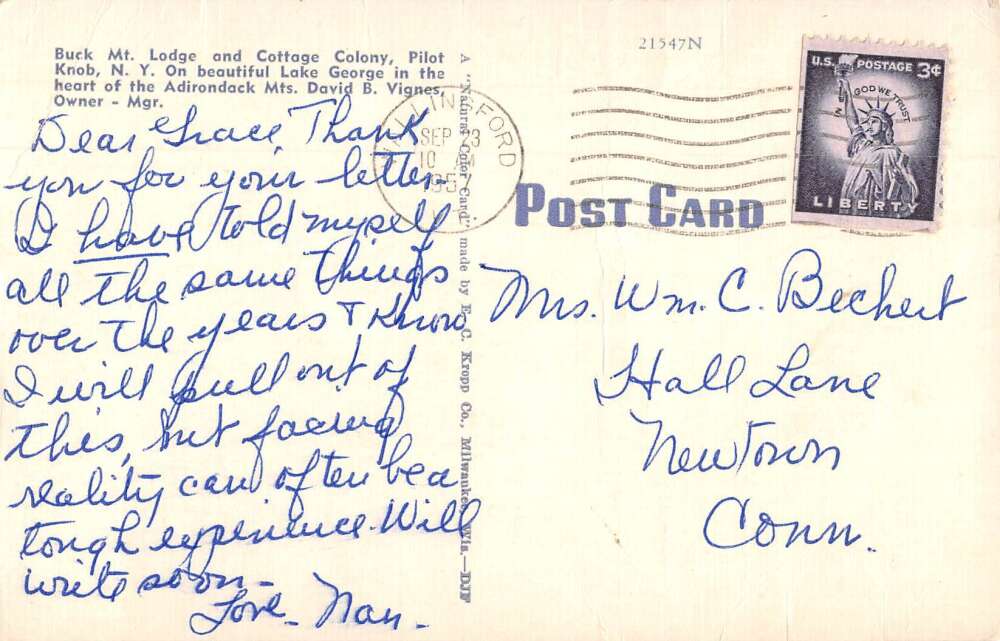 Buck Mt. Lodge and Cottage Colony, Pilot
Knob, N. Y. On beautiful Lake George in the
heart of the Adirondack Mts. David B. Vignes,
Owner - Mgr.
Dear Grace, Thank
you for your letter-
I have told myself
all the same things
over the years & know
I will pull out of
this, but facing
reality can often be a
tough experience. Will
write soon-
Love- Nan.
A "Natural Color Card" made by E. C. Kropp Co., Milwaukee, Wis.—DJF
21547N
WALLINGFORD
SEP 23
10
195
U.S. POSTAGE 3¢
IN GOD WE TRUST
LIBERTY
POST CARD
Mrs. Wm. C. Bechert
Hall Lane
Newtown
Conn.